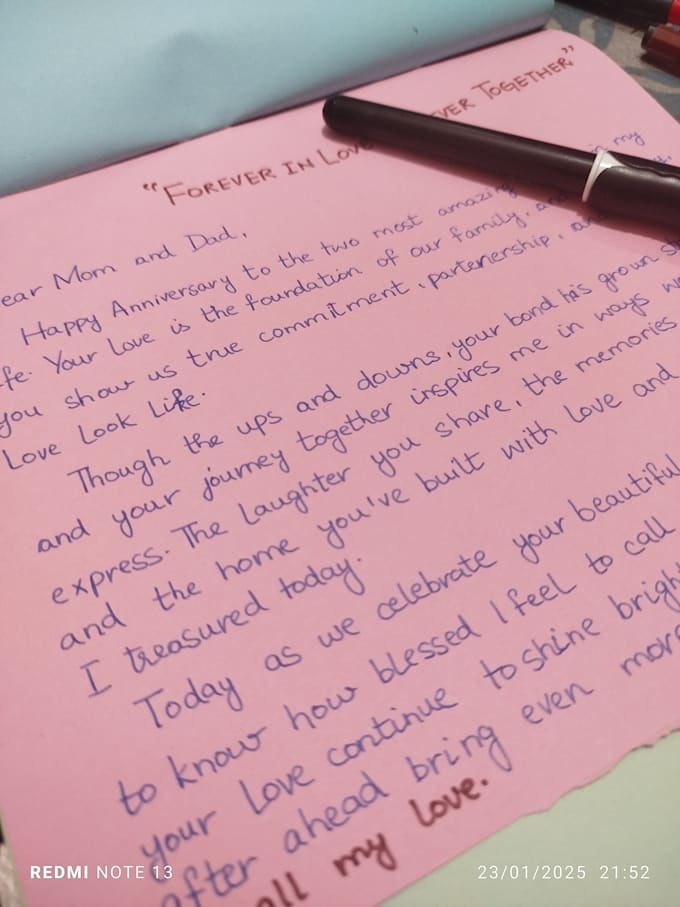 "FOREVER IN LOVE EVER TOGETHER"
ear Mom and Dad,
Happy Anniversary to the two most amazing in my
fe. Your Love is the foundation of our family, and
you show us true commitment, partenership, and
Love Look Like.
Though the ups and downs, your bond his grown
and your journey together inspires me in ways
express. The Laughter you share, the memories
and the home you've built with Love and
I treasured today.
Today as we celebrate your beautiful
to know how blessed I feel to call
your Love continue to shine brigh
after ahead bring even more
all my love.
REDMI NOTE 13
23/01/2025 21:52